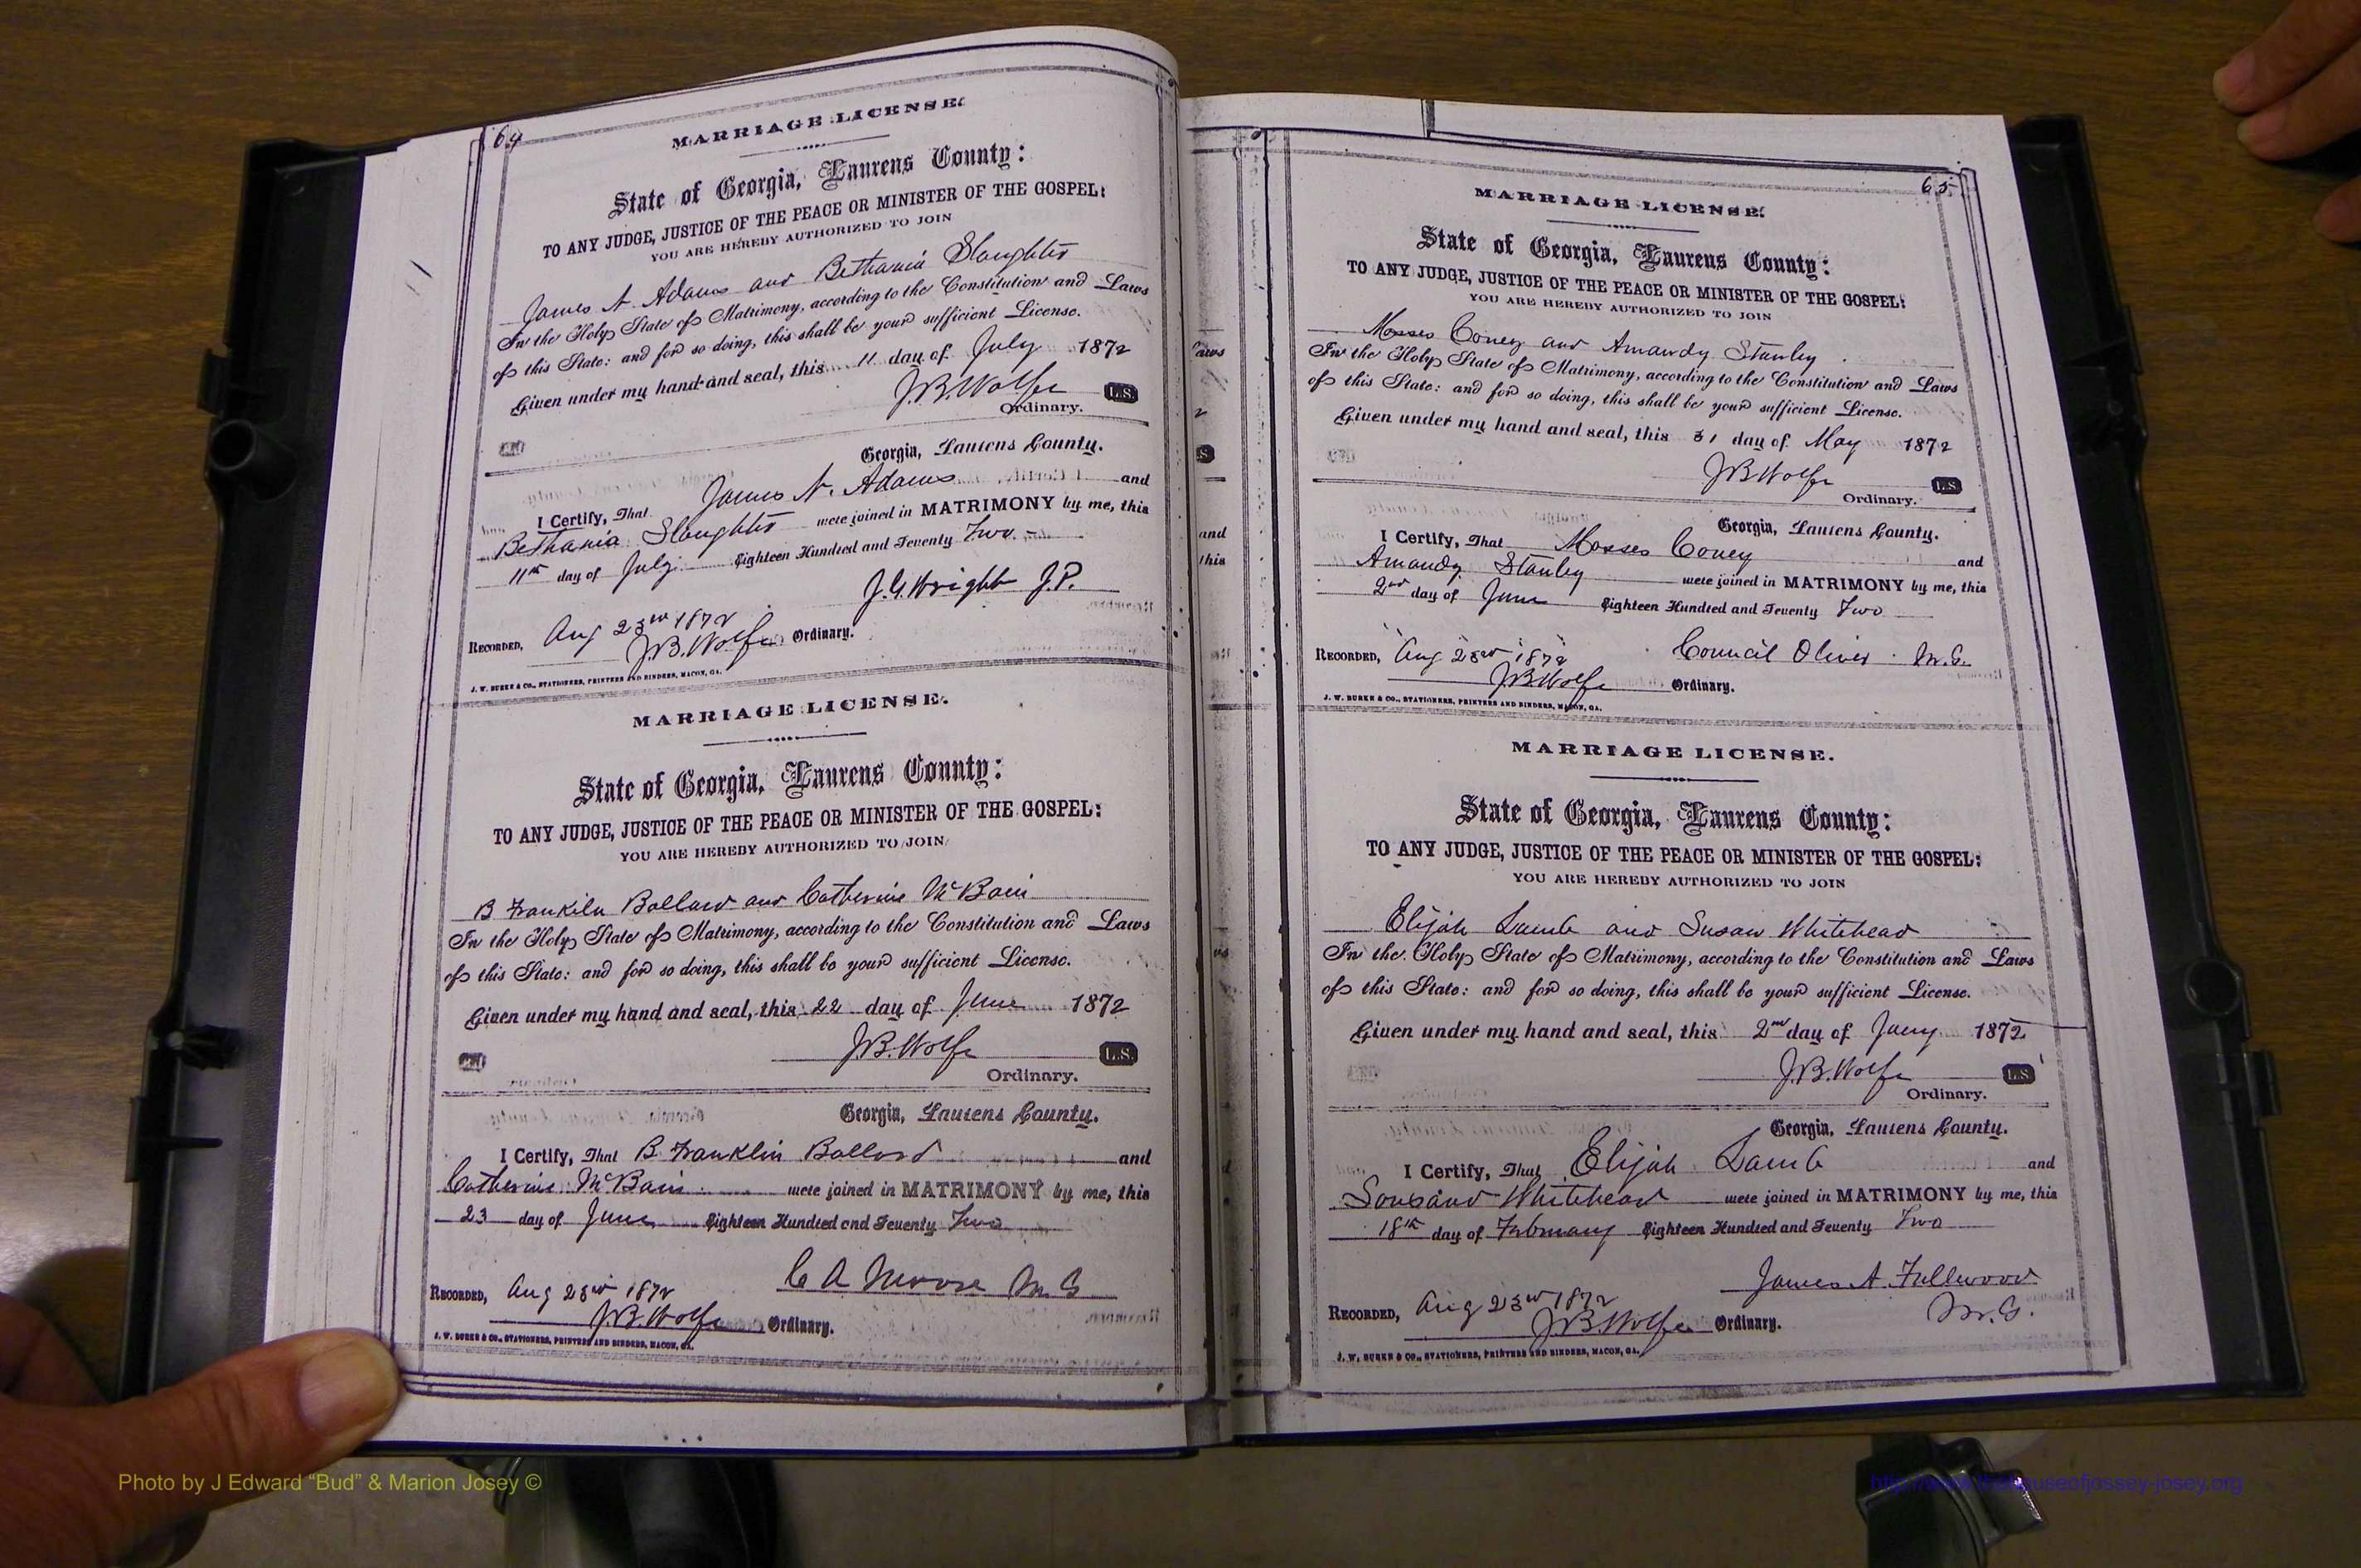 64
MARRIAGE LICENSE.
State of Georgia, Laurens County:
TO ANY JUDGE, JUSTICE OF THE PEACE OR MINISTER OF THE GOSPEL:
YOU ARE HEREBY AUTHORIZED TO JOIN
James N. Adams and Bethania Slaughter
In the Holy State of Matrimony, according to the Constitution and Laws
of this State: and for so doing, this shall be your sufficient License.
Given under my hand and seal, this 11 day of July 1872
J.B. Wolfe L.S.
Ordinary.
Georgia, Laurens County.
I Certify, That James N. Adams and
Bethania Slaughter were joined in MATRIMONY by me, this
11th day of July Eighteen Hundred and Seventy Two
J.G. Wright J.P.
RECORDED, Aug 23rd 1872
J.B. Wolfe Ordinary.
J. W. BURKE & CO., STATIONERS, PRINTERS AND BINDERS, MACON, GA.
MARRIAGE LICENSE.
State of Georgia, Laurens County:
TO ANY JUDGE, JUSTICE OF THE PEACE OR MINISTER OF THE GOSPEL:
YOU ARE HEREBY AUTHORIZED TO JOIN
B Franklin Ballard and Catherine McBain
In the Holy State of Matrimony, according to the Constitution and Laws
of this State: and for so doing, this shall be your sufficient License.
Given under my hand and seal, this 22 day of June 1872
J.B. Wolfe L.S.
Ordinary.
Georgia, Laurens County.
I Certify, That B. Franklin Ballard and
Catherine McBain were joined in MATRIMONY by me, this
23 day of June Eighteen Hundred and Seventy Two
C A Moore M.G
RECORDED, Aug 23rd 1872
J.B. Wolfe Ordinary.
J. W. BURKE & CO., STATIONERS, PRINTERS AND BINDERS, MACON, GA.
65
MARRIAGE LICENSE.
State of Georgia, Laurens County:
TO ANY JUDGE, JUSTICE OF THE PEACE OR MINISTER OF THE GOSPEL:
YOU ARE HEREBY AUTHORIZED TO JOIN
Mosses Coney and Amandy Stanley
In the Holy State of Matrimony, according to the Constitution and Laws
of this State: and for so doing, this shall be your sufficient License.
Given under my hand and seal, this 31 day of May 1872
J B Wolfe L.S.
Ordinary.
Georgia, Laurens County.
I Certify, That Mosses Coney and
Amandy Stanley were joined in MATRIMONY by me, this
2nd day of June Eighteen Hundred and Seventy Two
Council Oliver M.G.
RECORDED, Aug 23rd 1872
J B Wolfe Ordinary.
J. W. BURKE & CO., STATIONERS, PRINTERS AND BINDERS, MACON, GA.
MARRIAGE LICENSE.
State of Georgia, Laurens County:
TO ANY JUDGE, JUSTICE OF THE PEACE OR MINISTER OF THE GOSPEL:
YOU ARE HEREBY AUTHORIZED TO JOIN
Elijah Lamb and Susan Whitehead
In the Holy State of Matrimony, according to the Constitution and Laws
of this State: and for so doing, this shall be your sufficient License.
Given under my hand and seal, this 2nd day of Jany 1872
J.B. Wolfe L.S.
Ordinary.
Georgia, Laurens County.
I Certify, That Elijah Lamb and
Sousand Whitehead were joined in MATRIMONY by me, this
18th day of February Eighteen Hundred and Seventy Two
James A. Fullwood
M.G.
RECORDED, Aug 23rd 1872
J B Wolfe Ordinary.
J. W. BURKE & CO., STATIONERS, PRINTERS AND BINDERS, MACON, GA.
Photo by J Edward “Bud” & Marion Josey ©
http://www.thehouseofjossey-josey.org